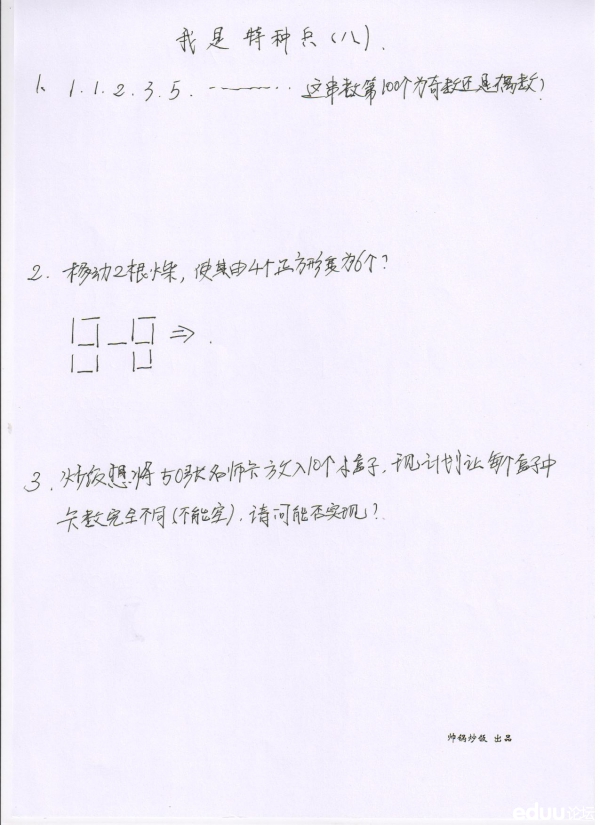 我是特种兵(八).
1. 1.1.2.3.5. ------ 这串数第100个为奇数还是偶数?
2. 移动2根火柴,使其由4个正方形变为6个?
⇒ .
3. 炒饭想将50张名师卡放入10个小盒子,现计划让每个盒子中
卡数完全不同(不能空).请问能否实现?
帅锅炒饭 出品
eduu论坛